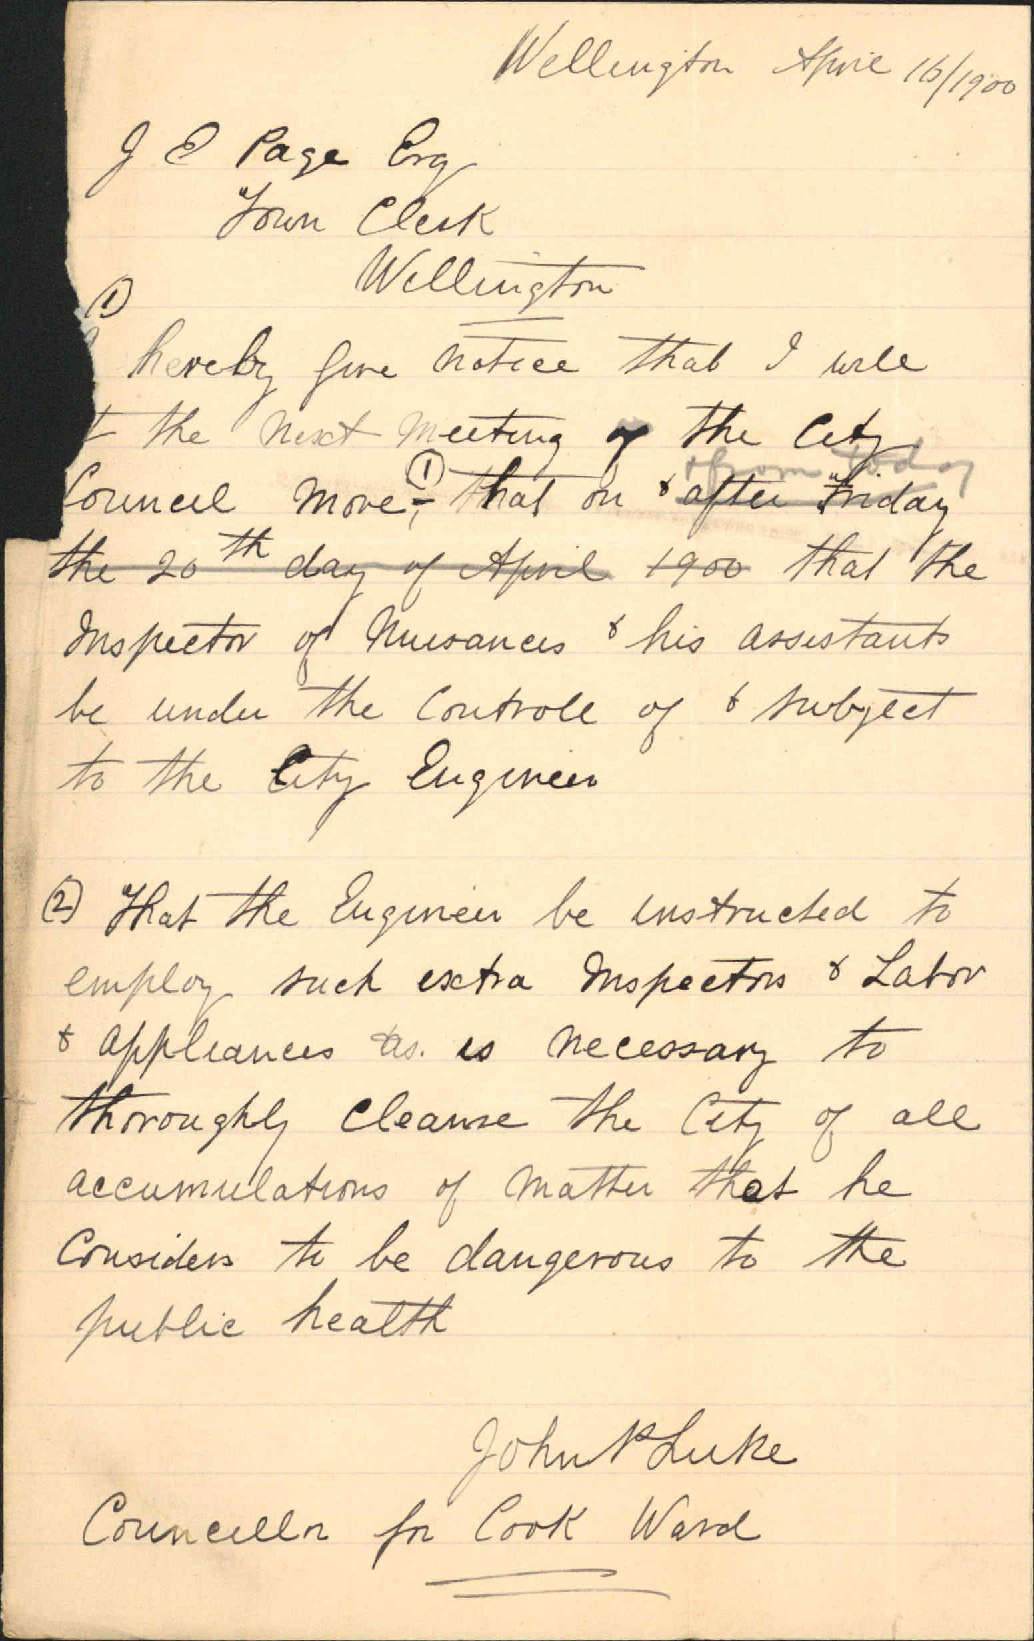 Wellington April 16/1900
J E Page Esq
Town Clerk
Wellington
①
hereby give notice that I will
t the next meeting of the City
& from today
Council move ① :- that on & after Friday
the 20th day of April 1900 that the
Inspector of Nuisances & his assistants
be under the Controle of & subject
to the City Engineer
② That the Engineer be instructed to
employ such extra Inspectors & Labor
& appliances as. is necessary to
thoroughly cleanse the City of all
accumulations of matter that he
Considers to be dangerous to the
public health
John P Luke
Councillor for Cook Ward